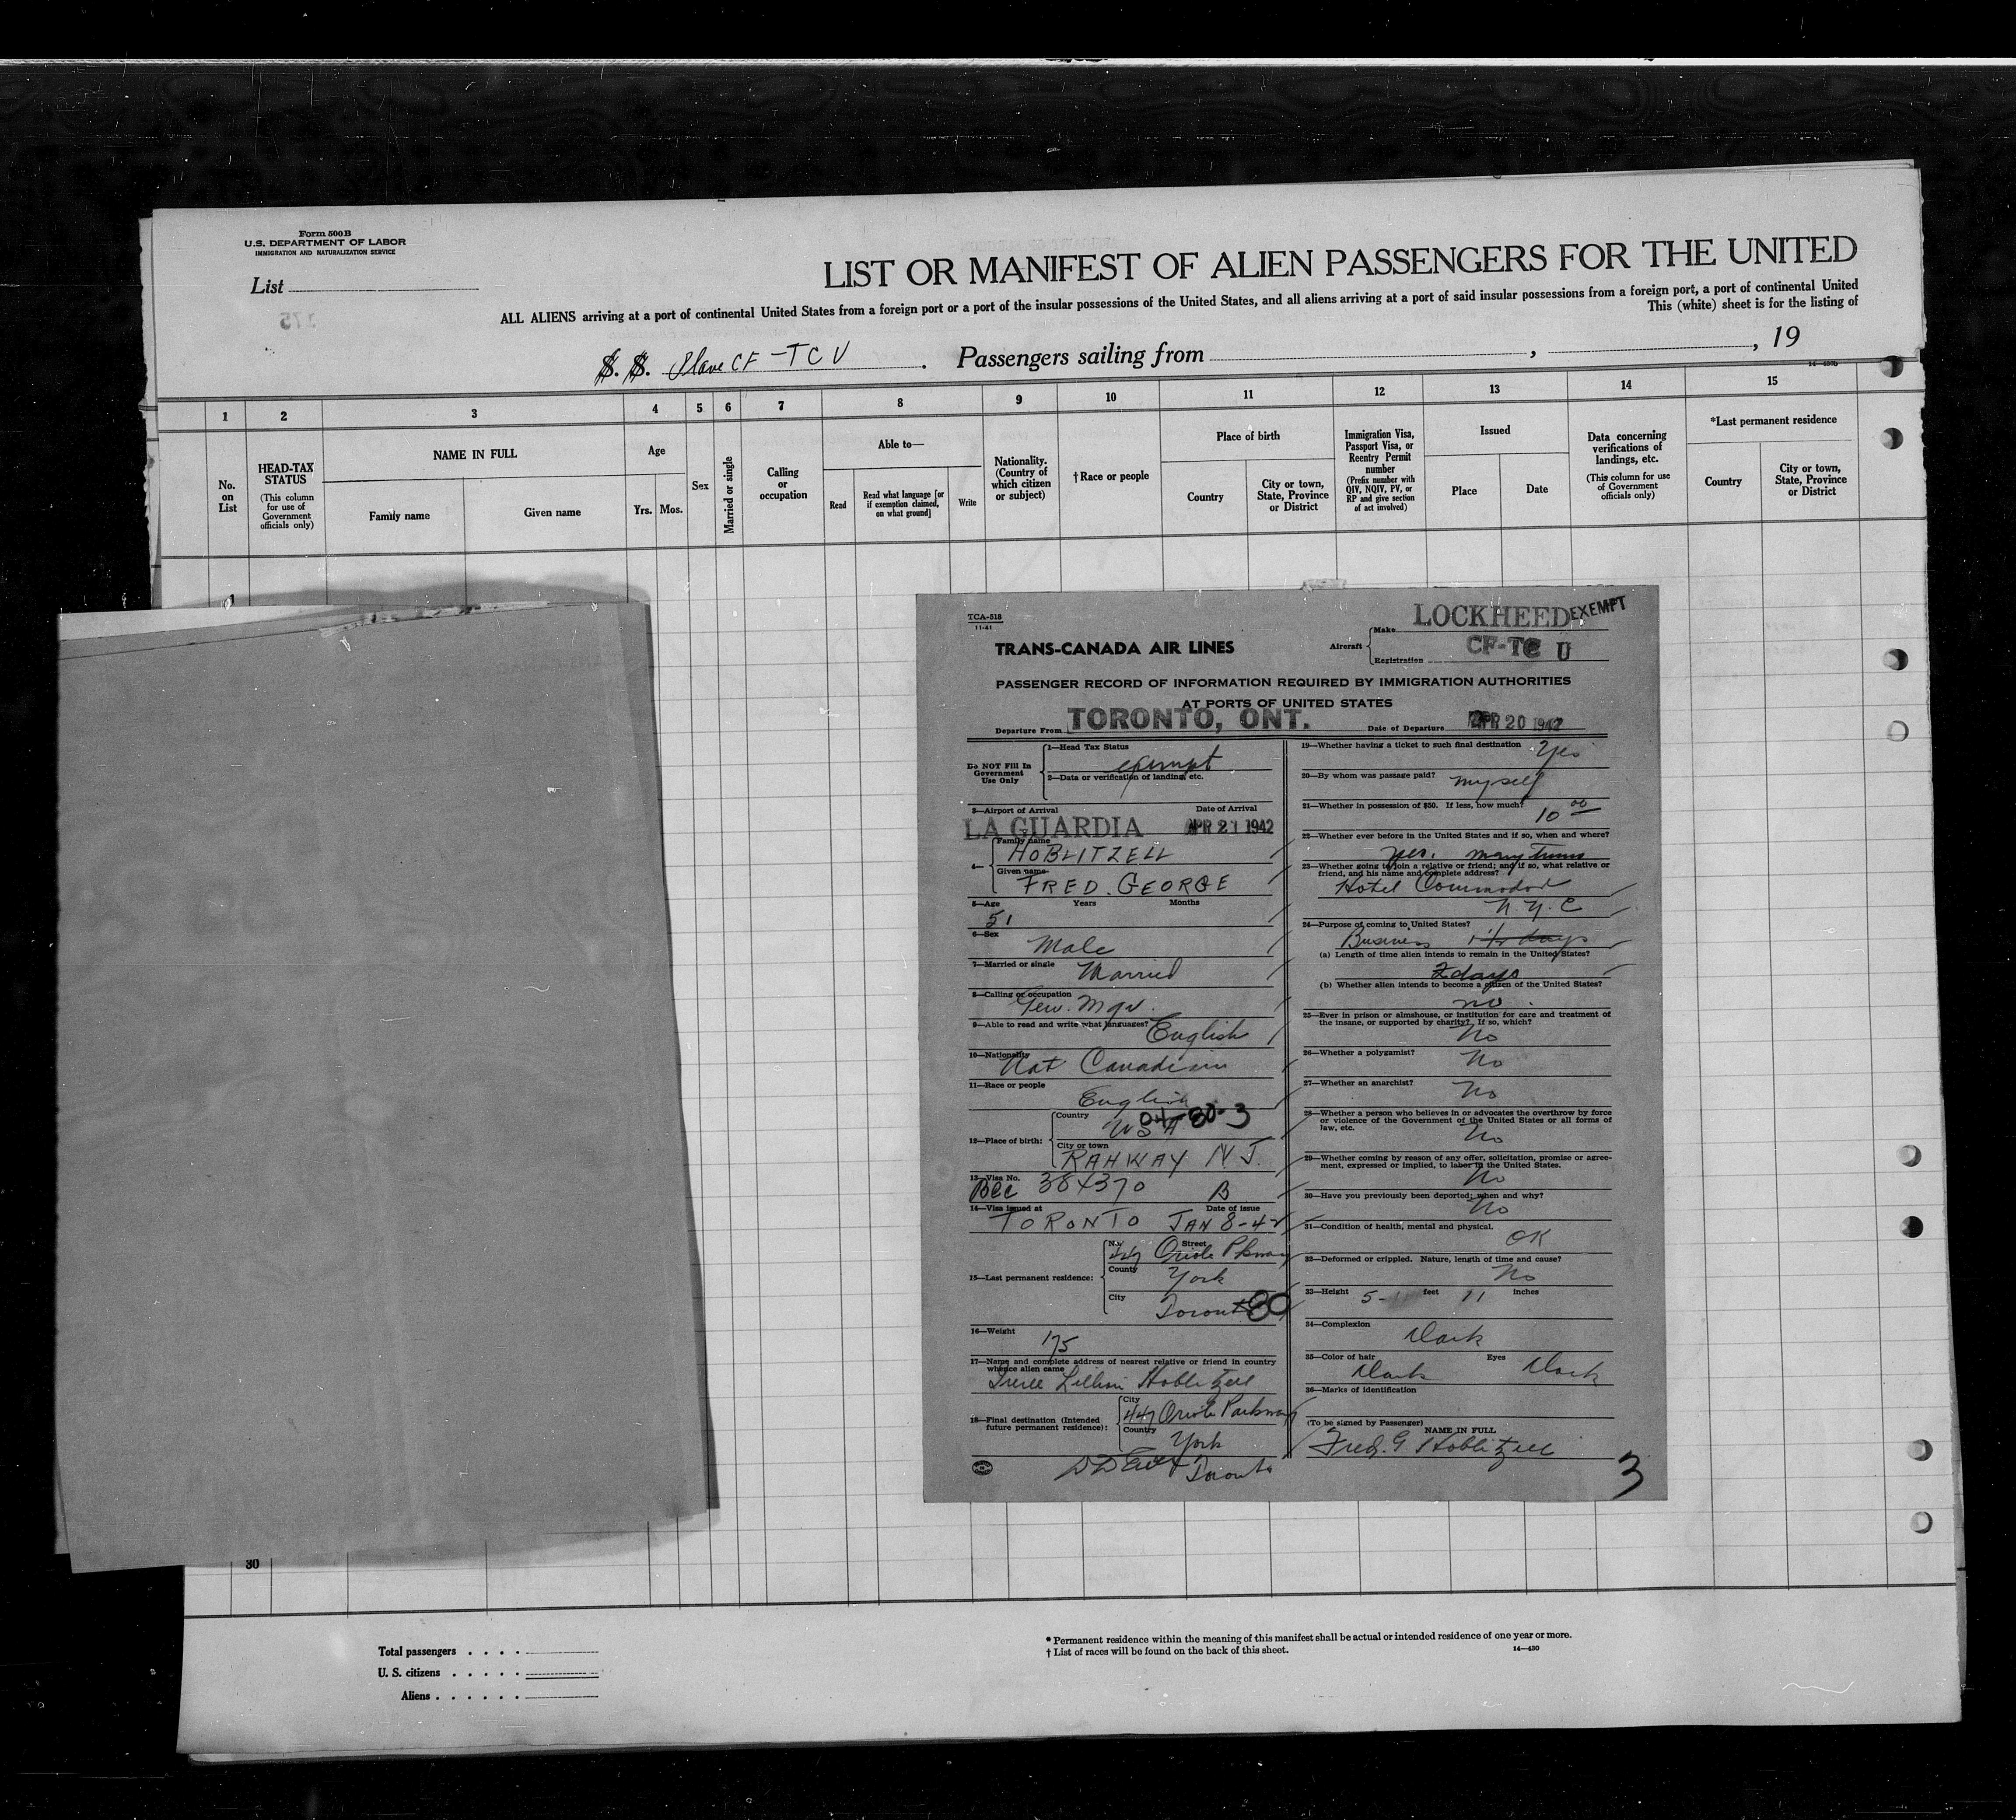 Form 500B
U.S. DEPARTMENT OF LABOR
IMMIGRATION AND NATURALIZATION SERVICE
List
LIST OR MANIFEST OF ALIEN PASSENGERS FOR THE UNITED
ALL ALIENS arriving at a port of continental United States from a foreign port or a port of the insular possessions of the United States, and all aliens arriving at a port of said insular possessions from a foreign port, a port of continental United
This (white) sheet is for the listing of
S. S. Plane CF-TCU. Passengers sailing from , , 19
14-430b
1 2 3 4 5 6 7 8 9 10 11 12 13 14 15
No. on List
HEAD-TAX STATUS
(This column for use of Government officials only)
NAME IN FULL
Family name
Given name
Age
Yrs. Mos.
Sex
Married or single
Calling or occupation
Able to—
Read
Read what language [or if exemption claimed, on what ground]
Write
Nationality. (Country of which citizen or subject)
†Race or people
Place of birth
Country
City or town, State, Province or District
Immigration Visa, Passport Visa, or Reentry Permit number
(Prefix number with QIV, NQIV, PV, or RP and give section of act involved)
Issued
Place
Date
Data concerning verifications of landings, etc.
(This column for use of Government officials only)
*Last permanent residence
Country
City or town, State, Province or District
1
30
TCA-518
11-41
TRANS-CANADA AIR LINES
Aircraft
Make LOCKHEED EXEMPT
Registration CF-TC U
PASSENGER RECORD OF INFORMATION REQUIRED BY IMMIGRATION AUTHORITIES
AT PORTS OF UNITED STATES
Departure From TORONTO, ONT. Date of Departure APR 20 1942
Do NOT Fill In Government Use Only
1—Head Tax Status
exempt
2—Data or verification of landing, etc.
3—Airport of Arrival Date of Arrival
LA GUARDIA APR 21 1942
4— Family name
HOBLITZELL
Given name
FRED. GEORGE
5—Age Years Months
51
6—Sex
Male
7—Married or single Married
8—Calling or occupation
Gen. Mgr.
9—Able to read and write what languages? English
10—Nationality
Nat Canadian
11—Race or people
English
04-80-3
12—Place of birth:
Country
USA
City or town
RAHWAY N J.
13—Visa No.
BCC 384370 B
14—Visa issued at Date of issue
TORONTO JAN 8-42
15—Last permanent residence:
No. Street
447 Oriole Pkway
County
York
City
Toronto 80
16—Weight
175
17—Name and complete address of nearest relative or friend in country whence alien came
Hoblitzell
18—Final destination (Intended future permanent residence):
City
447 Oriole Parkway
Country
York
Toronto
19—Whether having a ticket to such final destination Yes
20—By whom was passage paid? myself
21—Whether in possession of $50. If less, how much? 10 00
22—Whether ever before in the United States and if so, when and where?
yes. many times
23—Whether going to join a relative or friend; and if so, what relative or friend, and his name and complete address?
Hotel Commodore
N.Y.C
24—Purpose of coming to United States?
Business
(a) Length of time alien intends to remain in the United States?
2 days
(b) Whether alien intends to become a citizen of the United States?
no.
25—Ever in prison or almshouse, or institution for care and treatment of the insane, or supported by charity? If so, which?
No
26—Whether a polygamist? No
27—Whether an anarchist? No
28—Whether a person who believes in or advocates the overthrow by force or violence of the Government of the United States or all forms of law, etc.
No
29—Whether coming by reason of any offer, solicitation, promise or agreement, expressed or implied, to labor in the United States.
No
30—Have you previously been deported; when and why?
No
31—Condition of health, mental and physical.
OK
32—Deformed or crippled. Nature, length of time and cause?
No
33—Height 5- feet 11 inches
34—Complexion
Dark
35—Color of hair Eyes
Dark Dark
36—Marks of identification
(To be signed by Passenger) NAME IN FULL
Fred. G Hoblitzell
3
Total passengers
U. S. citizens
Aliens
* Permanent residence within the meaning of this manifest shall be actual or intended residence of one year or more.
† List of races will be found on the back of this sheet.
14—430